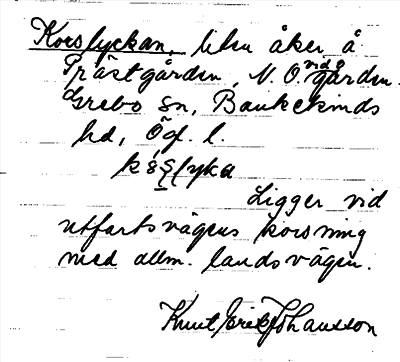 Korslyckan, liten åker å
Prästgården, N. O. vid gården.
Grebo sn, Bankekinds
hd, Ög. l.
Ligger vid
utfartsvägens korsning
med allm. landsvägen.
Knut Erik Johansson